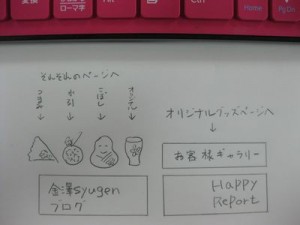 変換
ローマ字
Ctrl
Home
それぞれのページへ
水引
こぼし
オリジナルグッズページへ
お客様ギャラリー
金澤syugen
ブログ
Happy
Report